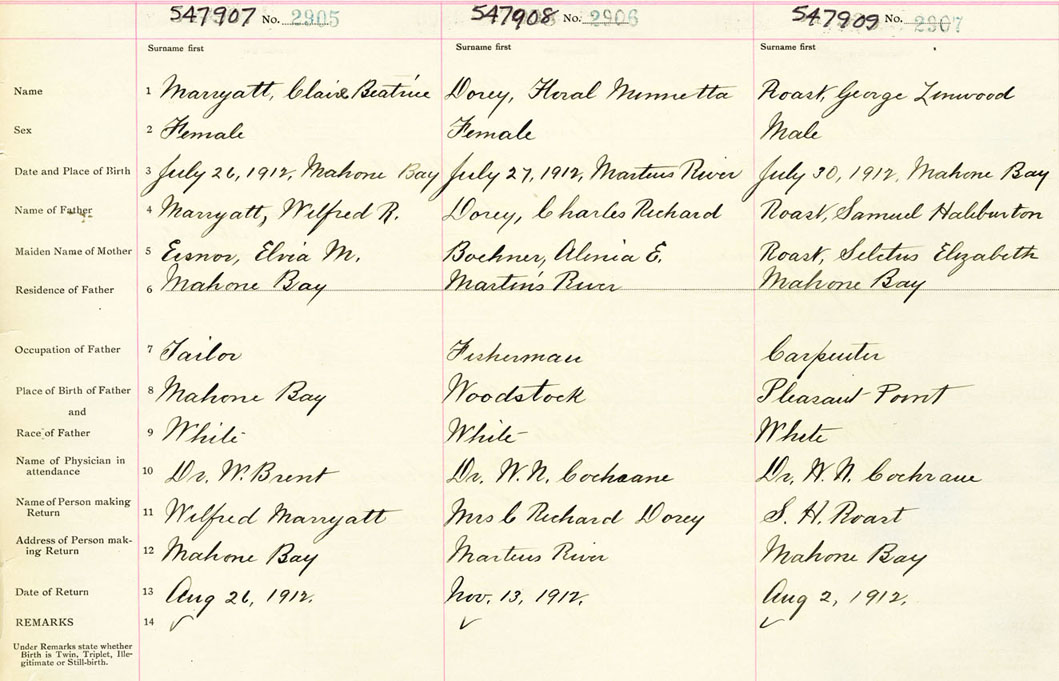 547907 No. 2905 547908 No. 2906 547909 No. 2907
Surname first Surname first Surname first
Name 1 Marryatt, Claire Beatrice Dorey, Floral Minnetta Roast, George Linwood
Sex 2 Female Female Male
Date and Place of Birth 3 July 26, 1912, Mahone Bay July 27, 1912, Martins River July 30, 1912, Mahone Bay
Name of Father 4 Marryatt, Wilfred R. Dorey, Charles Richard Roast, Samuel Haliburton
Maiden Name of Mother 5 Eisnor, Elvia M. Boehner, E. Roast, Elizabeth
Residence of Father 6 Mahone Bay Martin's River Mahone Bay
Occupation of Father 7 Tailor Fisherman Carpenter
Place of Birth of Father 8 Mahone Bay Woodstock Pleasant Point
and
Race of Father 9 White White White
Name of Physician in
attendance 10 Dr. W. Brent Dr. W. N. Cochrane Dr. W. N. Cochrane
Name of Person making
Return 11 Wilfred Marryatt Mrs C Richard Dorey S. H. Roast
Address of Person mak-
ing Return 12 Mahone Bay Martins River Mahone Bay
Date of Return 13 Aug 26, 1912. Nov. 13, 1912. Aug 2, 1912.
REMARKS 14 ✓ ✓ ✓
Under Remarks state whether
Birth is Twin, Triplet, Ille-
gitimate or Still-birth.